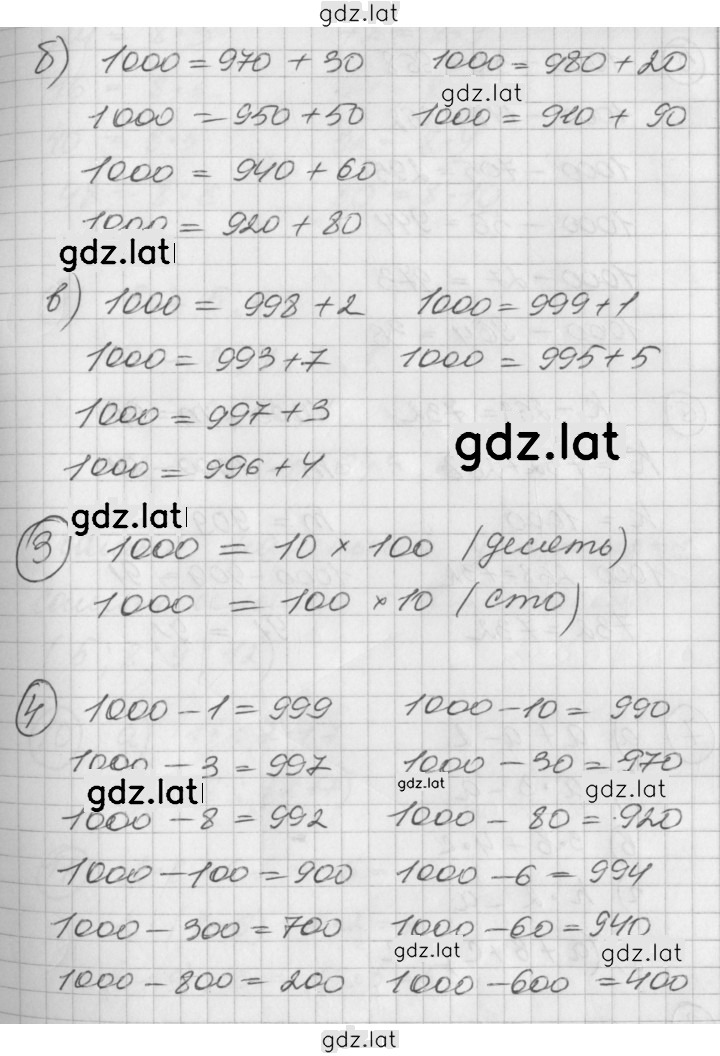 gdz.lat
б) 1000 = 970 + 30 1000 = 980 + 20
gdz.lat
1000 = 950 + 50 1000 = 910 + 90
1000 = 940 + 60
1000 = 920 + 80
gdz.lat
в) 1000 = 998 + 2 1000 = 999 + 1
1000 = 993 + 7 1000 = 995 + 5
1000 = 997 + 3
gdz.lat
1000 = 996 + 4
gdz.lat
3 1000 = 10 × 100 (десять)
1000 = 100 × 10 (сто)
4 1000 - 1 = 999 1000 - 10 = 990
1000 - 3 = 997 1000 - 30 = 970
gdz.lat gdz.lat gdz.lat
1000 - 8 = 992 1000 - 80 = 920
1000 - 100 = 900 1000 - 6 = 994
1000 - 300 = 700 1000 - 60 = 940
gdz.lat gdz.lat
1000 - 800 = 200 1000 - 600 = 400
gdz.lat